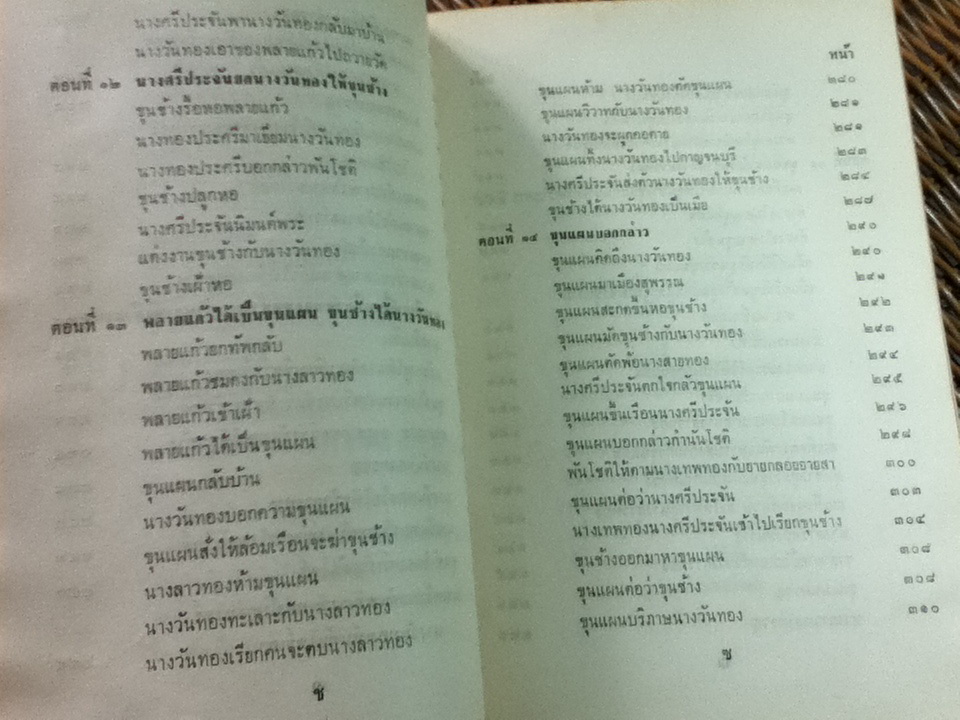 นางศรีประจันพานางวันทองกลับมาบ้าน
นางวันทองเอาของพลายแก้วไปถวายวัด
ตอนที่ ๑๒ นางศรีประจันยกนางวันทองให้ขุนช้าง
ขุนช้างรื้อหอพลายแก้ว
นางทองประศรีมาเยี่ยมนางวันทอง
นางทองประศรีบอกกล่าวพันโชติ
ขุนช้างปลูกหอ
นางศรีประจันนิมนต์พระ
แต่งงานขุนช้างกับนางวันทอง
ขุนช้างเฝ้าหอ
ตอนที่ ๑๓ พลายแก้วได้เป็นขุนแผน ขุนช้างได้นางวันทอง
พลายแก้วยกทัพกลับ
พลายแก้วชมดงกับนางลาวทอง
พลายแก้วเข้าเฝ้า
พลายแก้วได้เป็นขุนแผน
ขุนแผนกลับบ้าน
นางวันทองบอกความขุนแผน
ขุนแผนสั่งให้ล้อมเรือนจะฆ่าขุนช้าง
นางลาวทองห้ามขุนแผน
นางวันทองทะเลาะกับนางลาวทอง
นางวันทองเรียกคนจะตบนางลาวทอง
ช
หน้า
ขุนแผนห้าม นางวันทองตัดขุนแผน ๒๘๐
ขุนแผนวิวาทกับนางวันทอง ๒๘๑
นางวันทองจะผูกคอตาย ๒๘๑
ขุนแผนทิ้งนางวันทองไปกาญจนบุรี ๒๘๓
นางศรีประจันส่งตัวนางวันทองให้ขุนช้าง ๒๘๔
ขุนช้างได้นางวันทองเป็นเมีย ๒๘๗
ตอนที่ ๑๔ ขุนแผนบอกกล่าว ๒๙๐
ขุนแผนคิดถึงนางวันทอง ๒๙๐
ขุนแผนมาเมืองสุพรรณ ๒๙๑
ขุนแผนสะกดขึ้นหอขุนช้าง ๒๙๒
ขุนแผนมัดขุนช้างกับนางวันทอง ๒๙๓
ขุนแผนตัดพ้อนางสายทอง ๒๙๔
นางศรีประจันตกใจกลัวขุนแผน ๒๙๕
ขุนแผนขึ้นเรือนนางศรีประจัน ๒๙๖
ขุนแผนบอกกล่าวกำนันโชติ ๒๙๘
พันโชติให้ตามนางเทพทองกับยายกลอยยายสา ๓๐๐
ขุนแผนต่อว่านางศรีประจัน ๓๐๓
นางเทพทองนางศรีประจันเข้าไปเรียกขุนช้าง ๓๐๔
ขุนช้างออกมาหาขุนแผน ๓๐๘
ขุนแผนต่อว่าขุนช้าง ๓๐๘
ขุนแผนบริภาษนางวันทอง ๓๑๐
ซ